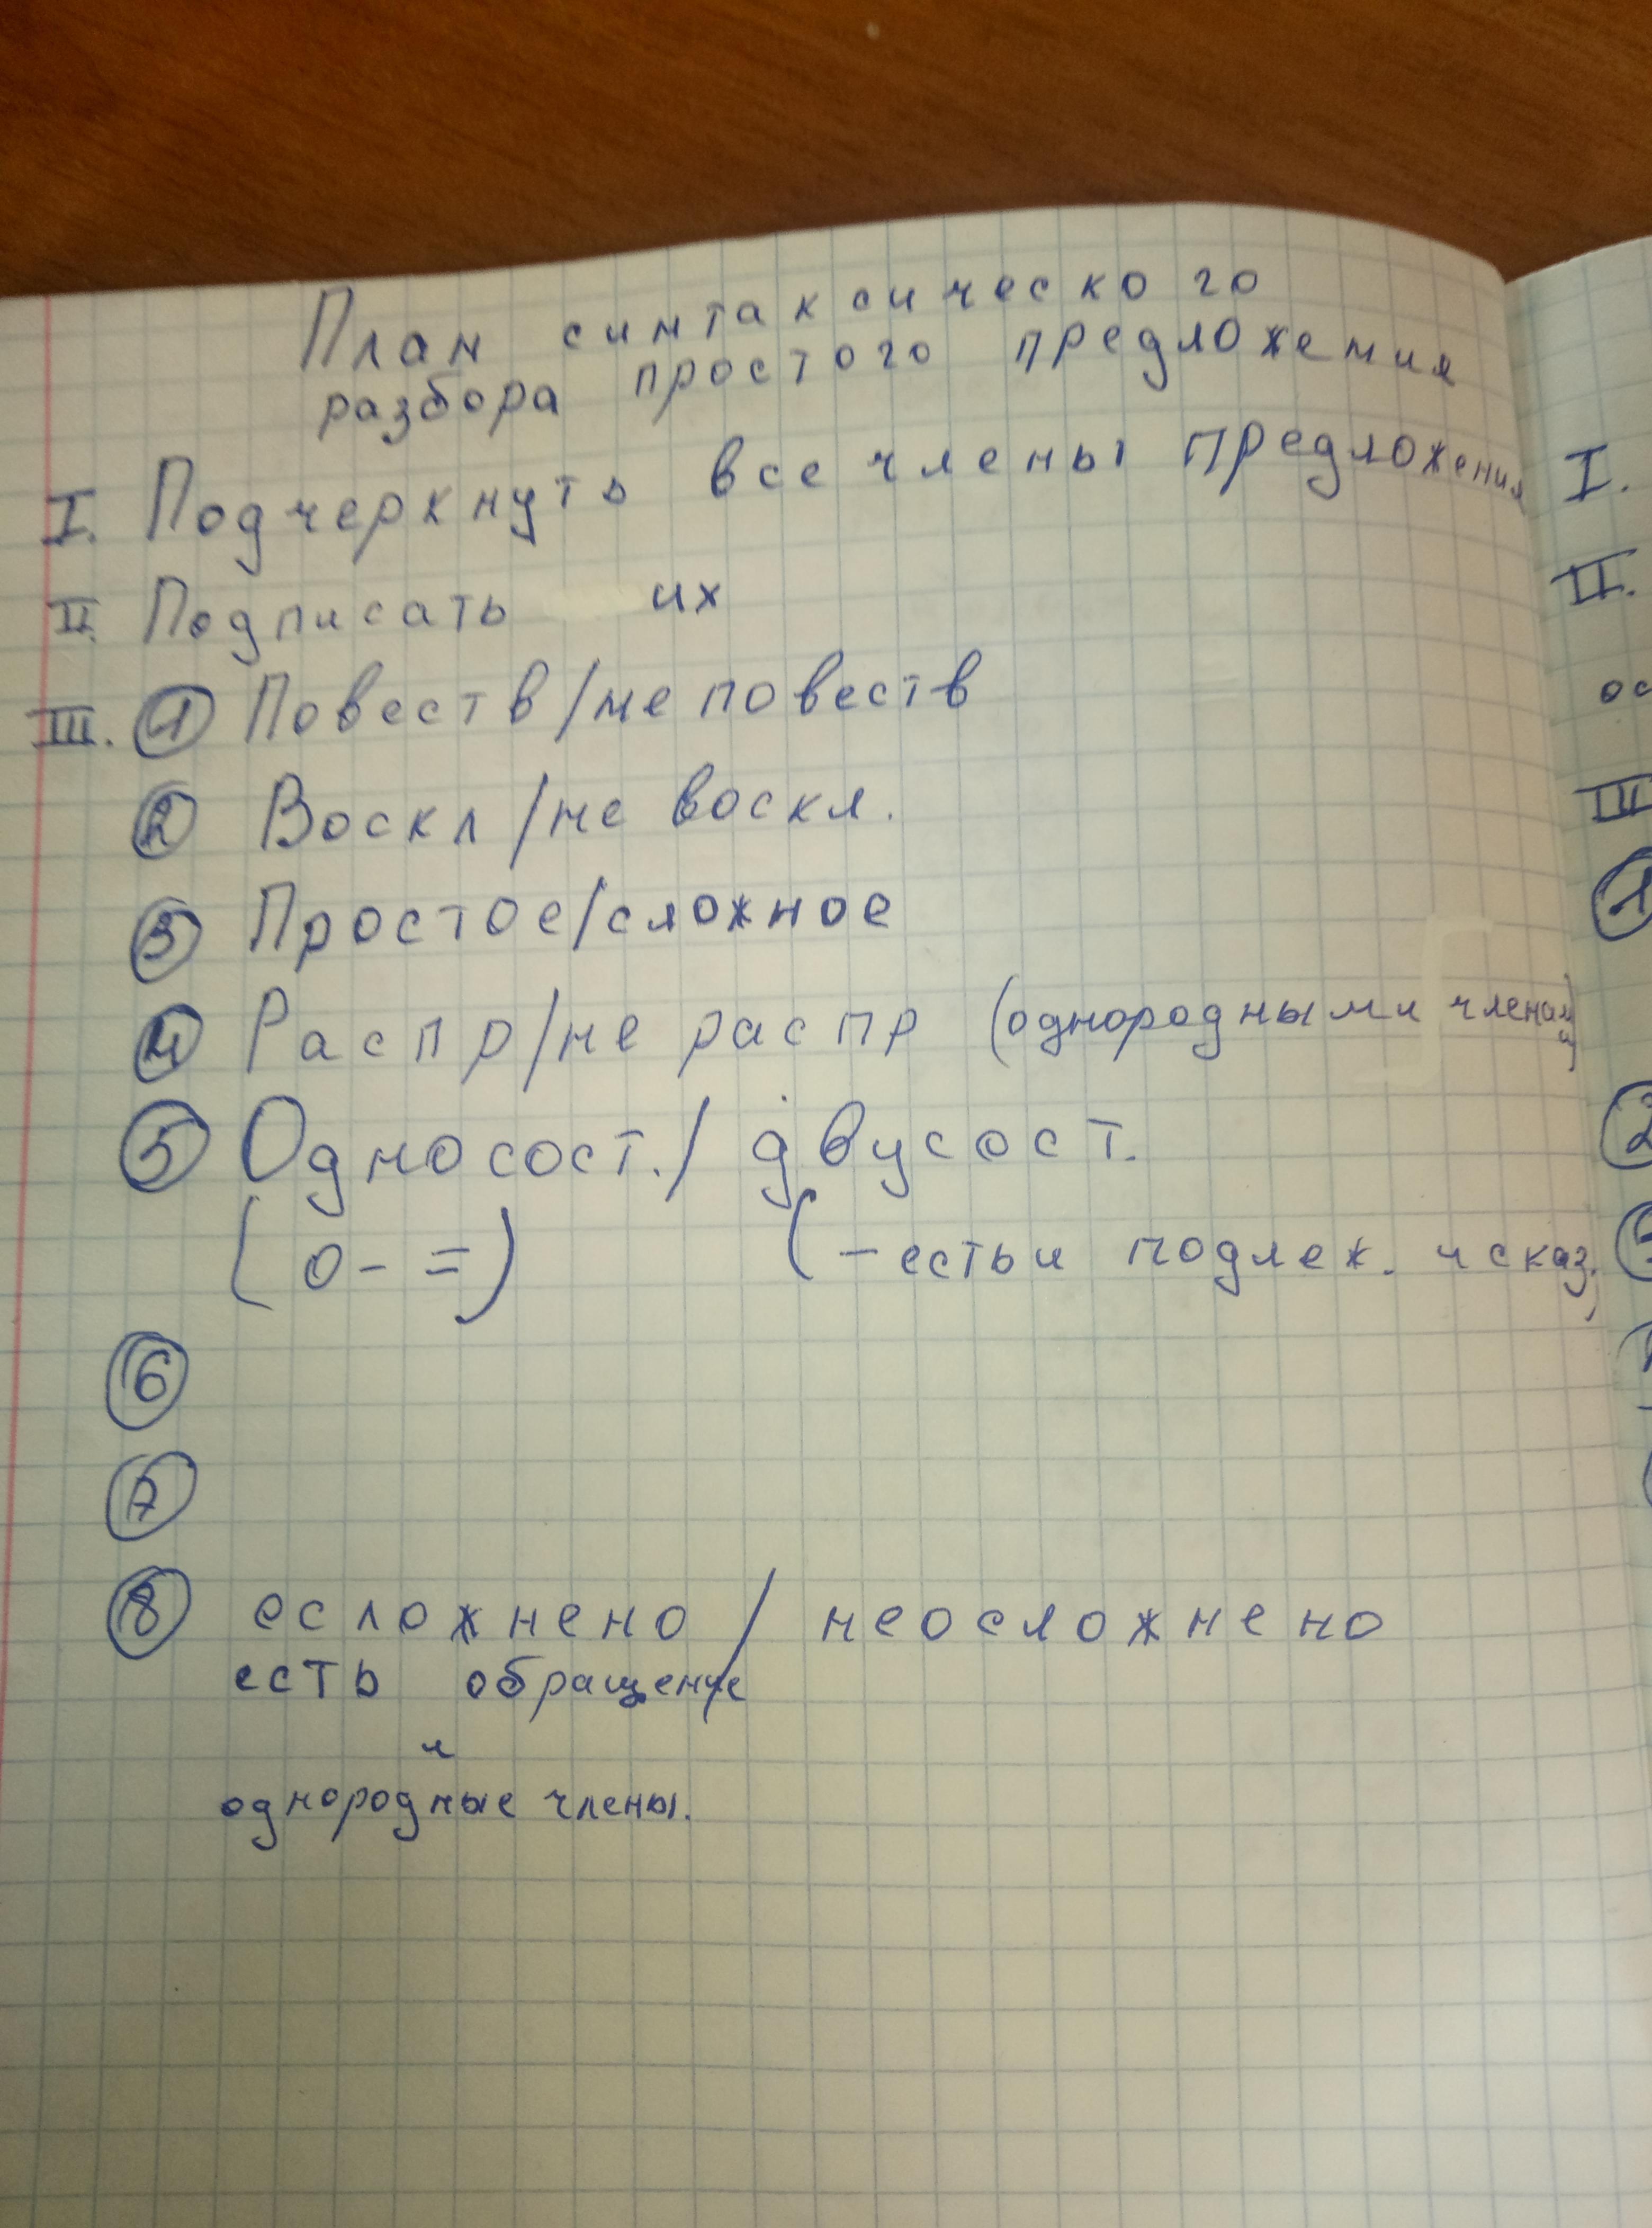 План синтаксического
разбора простого предложения
I. Подчеркнуть все члены предложения
II. Подписать их
III. 1 Повеств/не повеств
2 Воскл/не воскл.
3 Простое/сложное
4 Распр/не распр (однородными членами)
5 Односост./двусост.
(о- =) (-есть и подлеж. и сказ.)
6
7
8 осложнено / неосложнено
есть обращение
и
однородные члены.
I.
II.
ос
III
1
2